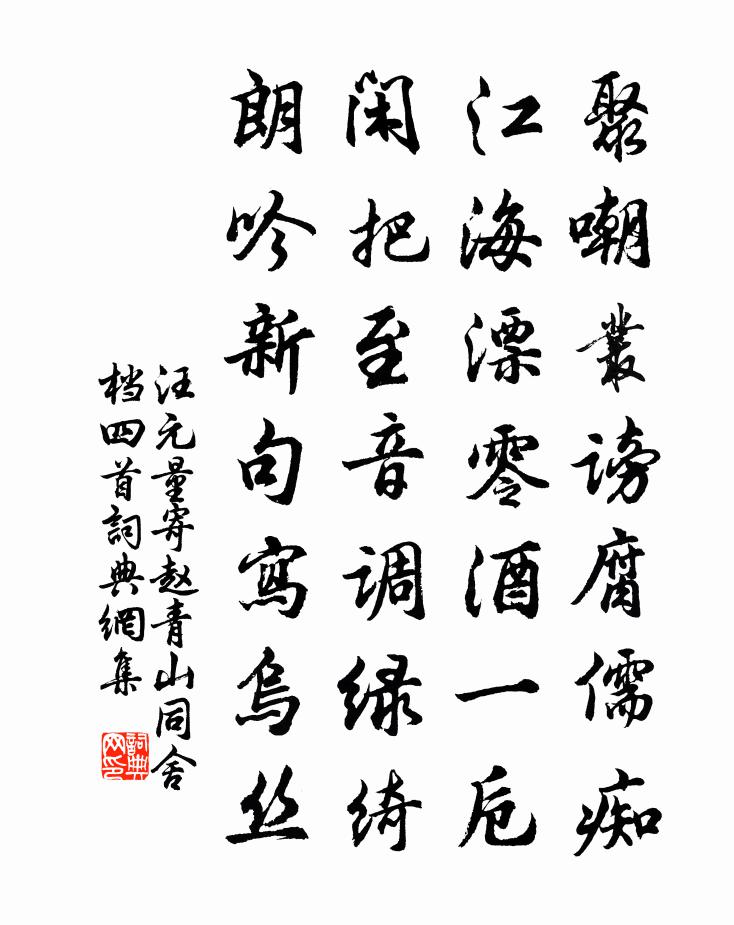 聚嘲叢謗腐儒痴
江海漂零酒一卮
闲把至音调绿绮
朗吟新句寫烏丝
汪元量寄赵青山同舍
档四首詞典網集
詞典网印